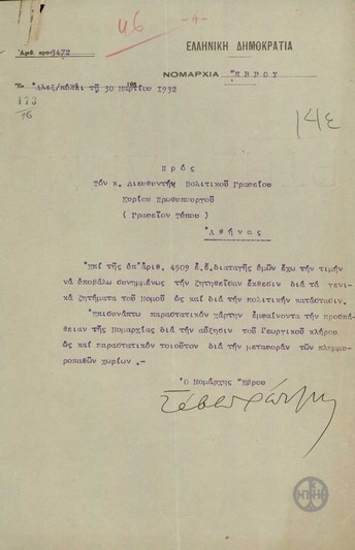 46 -A-
ΕΛΛΗΝΙΚΗ ΔΗΜΟΚΡΑΤΙΑ
Ἀριθ. πρω 3472
ΝΟΜΑΡΧΙΑ ἝΒΡΟΥ
Ἐν Ἀλεξ/πόλει τῇ 30 Μαρτίου 1932
173
16
14ε
Πρός
Τόν κ. Διευθυντήν Πολιτικοῦ Γραφείου
Κυρίου Πρωθυπουργοῦ
( Γραφεῖον Τύπου )
Ἀθήνας
Ἐπί τῆς ὑπ'ἀριθ. 4509 ἐ.ἔ.διαταγῆς ὑμῶν ἔχω τήν τιμήν
νά ὑποβάλω συνημμένως τήν ζητηθεῖσαν ἔκθεσιν διά τά γενι
κά ζητήματα τοῦ Νομοῦ ὡς καί διά τήν πολιτικήν κατάστασιν.
Ἐπισυνάπτω παραστατικόν χάρτην ἐμφαίνοντα τήν προσπά
θειαν τῆς Νομαρχίας διά τήν αὔξησιν τοῦ Γεωργικοῦ κλήρου
ὡς καί παραστατικόν τοιοῦτον διά τήν μεταφοράν τῶν πλημμυ
ροπαθῶν χωρίων .-
Ὁ Νομάρχης Ἕβρου